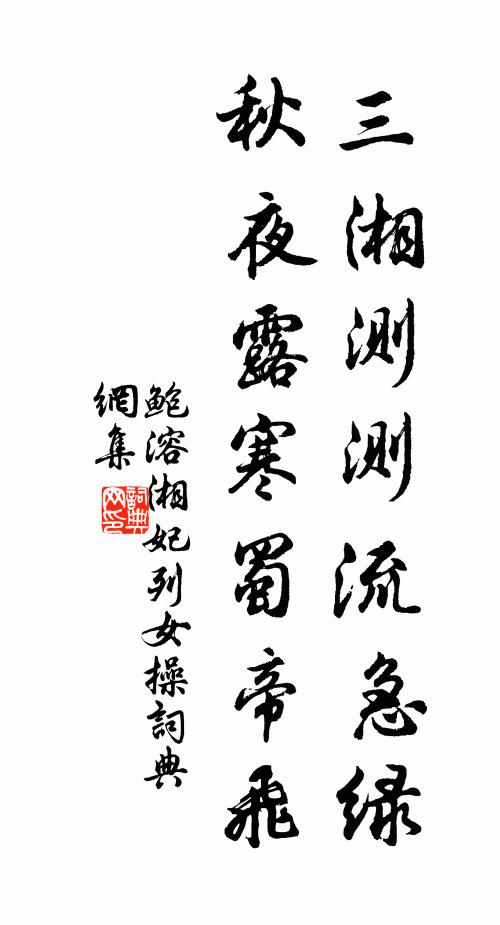 三湘測測流急綠
秋夜露寒蜀帝飛
鮑溶湘妃列女操詞典
網集
詞典
网印